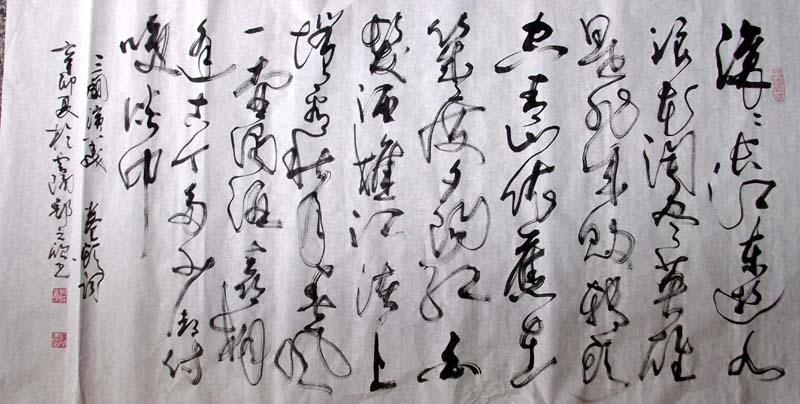 滚滚长江东逝水
浪花淘尽英雄
是非成败转头
空青山依旧在
几度夕阳红白
发渔樵江渚上
惯看秋月春风
一壶浊酒喜相
逢古今多少事都付
笑谈中
三國演义 卷首词
辛卯夏於